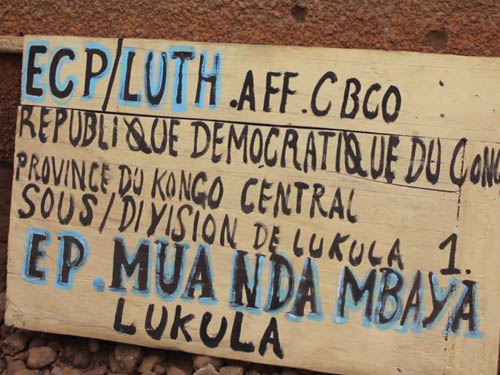 ECP/LUTH.AFF.CBCO
REPUBLIQUE DEMOCRATIQUE DU CONG
PROVINCE DU KONGO CENTRAL
SOUS/DIVISION DE LUKULA 1.
EP. MUANDA MBAYA
LUKULA